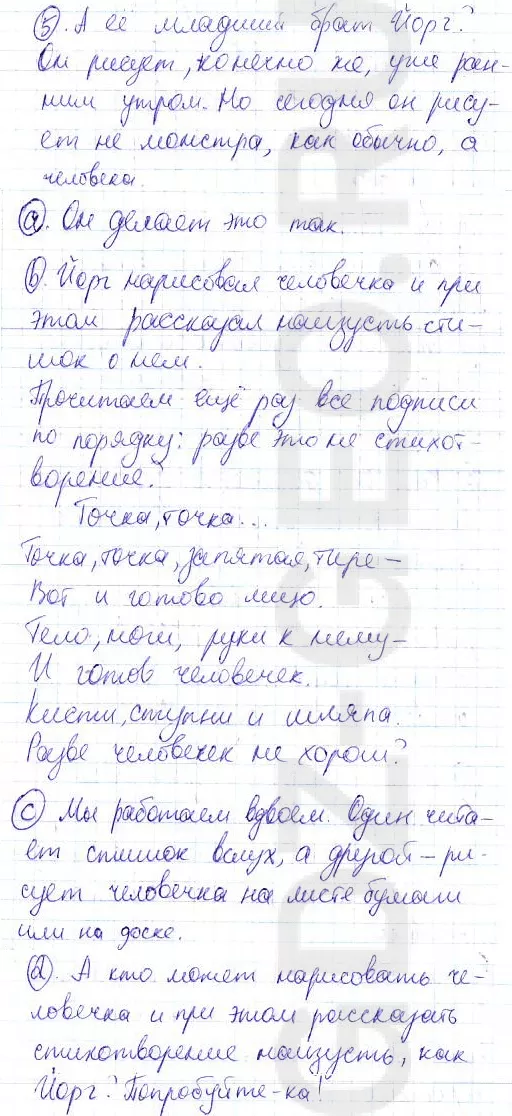 5. А ее младший брат Йорг?
Он рисует, конечно же, уже ран-
ним утром. Но сегодня он рису-
ет не монстра, как обычно, а
человека.
a. Он делает это так.
b. Йорг нарисовал человечка и при
этом рассказал наизусть сти-
шок о нем.
Прочитаем ещё раз все подписи
по порядку: разве это не стихот-
ворение?
Точка, точка...
Точка, точка, запятая, тире –
Вот и готово лицо.
Тело, ноги, руки к нему –
И готов человечек.
Кисти, ступни и шляпа.
Разве человечек не хорош?
c Мы работаем вдвоем. Один чита-
ет стишок вслух, а другой – ри-
сует человечка на листе бумаги
или на доске.
d. А кто может нарисовать че-
ловечка и при этом рассказать
стихотворение наизусть, как
Йорг? Попробуйте-ка!
GDZ-GEO.RU